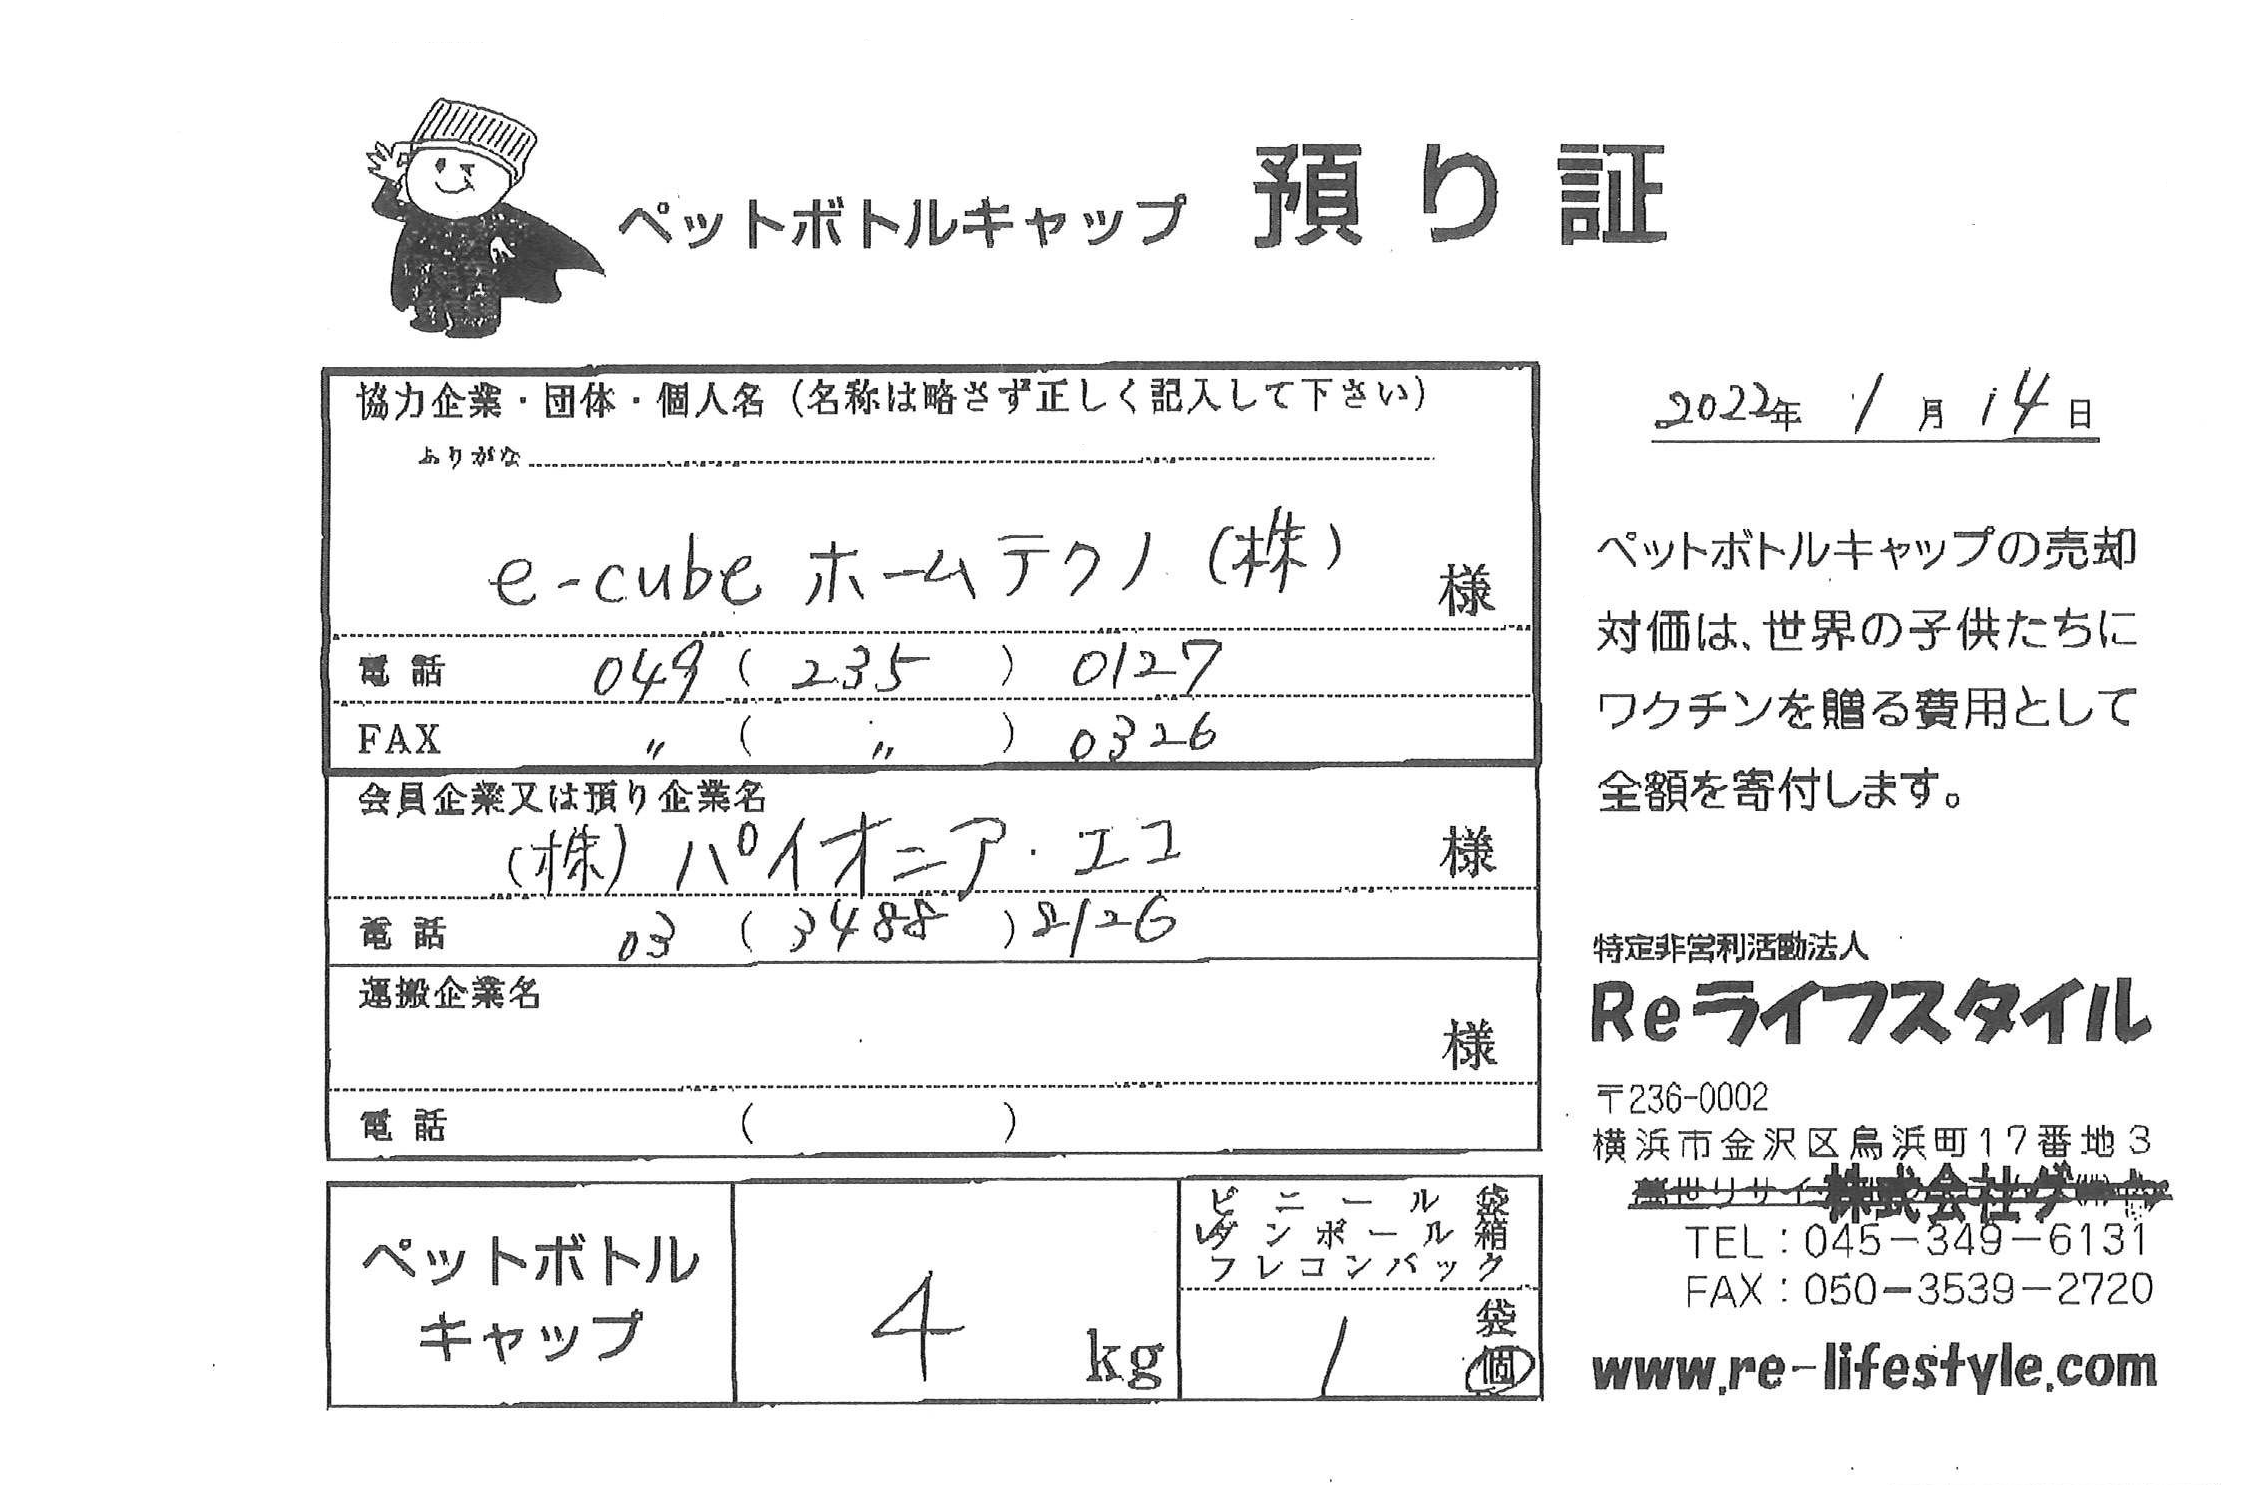 ペットボトルキャップ 預り証
協力企業・団体・個人名(名称は略さず正しく記入して下さい)
ふりがな
e-cube ホームテクノ(株) 様
電話 049 ( 235 ) 0127
FAX 〃 ( 〃 ) 0326
会員企業又は預り企業名
(株)パイオニア・エコ 様
電話 03 ( 3488 ) 8126
運搬企業名
様
電話 ( )
ペットボトル
キャップ
4 kg
ビニール袋
ダンボール箱
フレコンバック
袋
1 個
2022年 1月 14日
ペットボトルキャップの売却
対価は、世界の子供たちに
ワクチンを贈る費用として
全額を寄付します。
特定非営利活動法人
Reライフスタイル
〒236-0002
横浜市金沢区鳥浜町17番地3
株式会社
TEL:045-349-6131
FAX:050-3539-2720
www.re-lifestyle.com